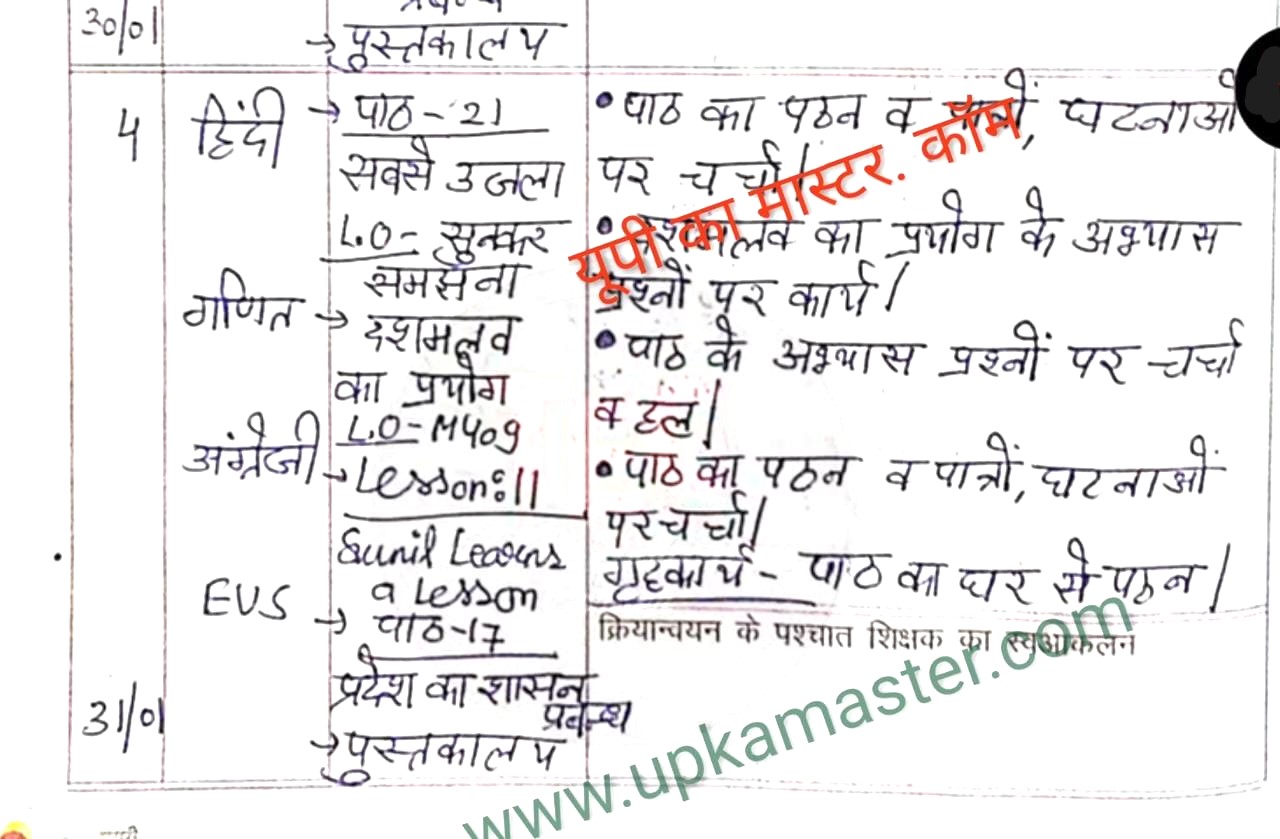 30/01
→ पुस्तकालय
4
हिंदी → पाठ - 21
सबसे उजला
L.O - सुनकर
समझना
गणित → दशमलव
का प्रयोग
L.O - M409
अंग्रेजी → Lesson: 11
Sunil Learns
a Lesson
EVS → पाठ-17
प्रदेश का शासन
प्रबन्ध
31/01
→ पुस्तकालय
• पाठ का पठन व पात्रों, घटनाओं
पर चर्चा।
• दशमलव का प्रयोग के अभ्यास
प्रश्नों पर कार्य।
• पाठ के अभ्यास प्रश्नों पर चर्चा
व हल।
• पाठ का पठन व पात्रों, घटनाओं
पर चर्चा।
गृहकार्य - पाठ का घर से पठन।
क्रियान्वयन के पश्चात शिक्षक का स्वआकलन
यूपी का मास्टर. कॉम
www.upkamaster.com